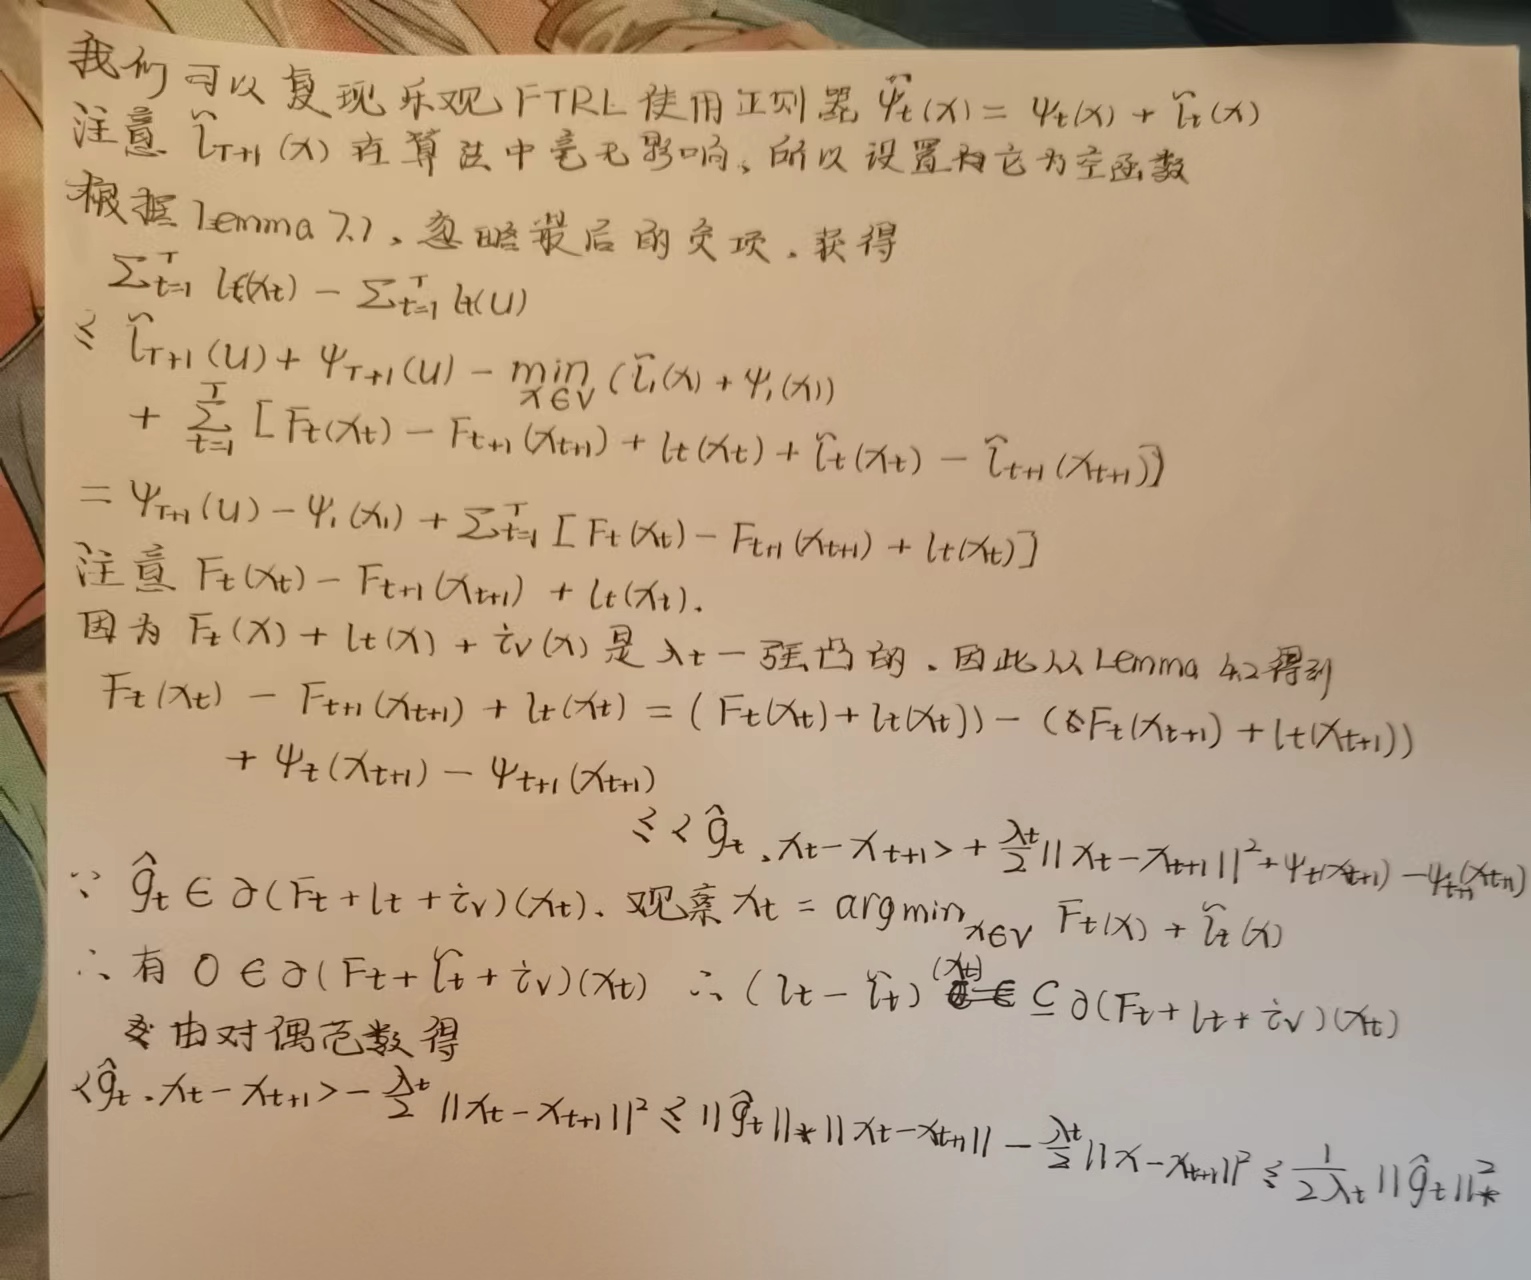 我们可以复现乐观FTRL使用正则器 ψ̃t(x) = ψt(x) + l̃t(x)
注意 l̃T+1(x) 在算法中毫无影响,所以设置为它为空函数
根据 Lemma 7.1,忽略最后的负项,获得
∑ᵀt=1 lt(xt) − ∑ᵀt=1 lt(u)
≤ l̃T+1(u) + ψT+1(u) − min x∈V (l̃1(x) + ψ1(x))
+ ∑ᵀt=1 [Ft(xt) − Ft+1(xt+1) + lt(xt) + l̃t(xt) − l̃t+1(xt+1)]
= ψT+1(u) − ψ1(x1) + ∑ᵀt=1 [Ft(xt) − Ft+1(xt+1) + lt(xt)]
注意 Ft(xt) − Ft+1(xt+1) + lt(xt).
因为 Ft(x) + lt(x) + iv(x) 是 λt − 强凸的,因此从 Lemma 4.2 得到
Ft(xt) − Ft+1(xt+1) + lt(xt) = (Ft(xt) + lt(xt)) − (Ft(xt+1) + lt(xt+1))
+ ψt(xt+1) − ψt+1(xt+1)
≤ <ĝt, xt − xt+1> + λt/2 ||xt − xt+1||² + ψt(xt+1) − ψt+1(xt+1)
∵ ĝt ∈ ∂(Ft + lt + iv)(xt), 观察 xt = argmin x∈V Ft(x) + l̃t(x)
∴ 有 0 ∈ ∂(Ft + l̃t + iv)(xt) ∴ (lt − l̃t)(xt) ⊆ ∂(Ft + lt + iv)(xt)
由对偶范数得
<ĝt, xt − xt+1> − λt/2 ||xt − xt+1||² ≤ ||ĝt||* ||xt − xt+1|| − λt/2 ||x − xt+1||² ≤ 1/2λt ||ĝt||²*